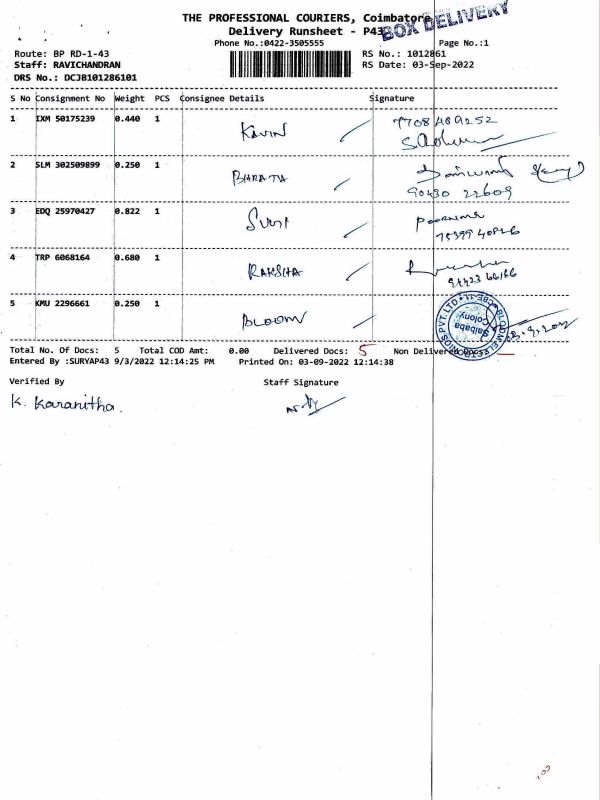 THE PROFESSIONAL COURIERS, Coimbatore
Delivery Runsheet - P43
BOX DELIVERY
Phone No.:0422-3505555
Page No.:1
Route: BP RD-1-43
RS No.: 1012861
Staff: RAVICHANDRAN
RS Date: 03-Sep-2022
DRS No.: DCJB101286101
S No Consignment No Weight PCS Consignee Details Signature
1 IXM 50175239 0.440 1 Kavin 7708489252
2 SLM 302509899 0.250 1 BHARATH
90430 22609
3 EDQ 25970427 0.822 1 Poornima
4 TRP 6068164 0.680 1 RAKSHA
94423 66166
5 KMU 2296661 0.250 1 BLOOM
BLOOM ELECTRONICS PVT. LTD CBE-11
Saibaba
Colony
Total No. Of Docs: 5 Total COD Amt: 0.00 Delivered Docs: 5 Non Delivered Docs:
Entered By :SURYAP43 9/3/2022 12:14:25 PM Printed On: 03-09-2022 12:14:38
Verified By Staff Signature
K. Karanitha.